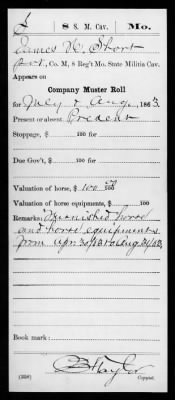 S | 8 S. M. Cav. | Mo.
James H. Short
Pvt, Co. M, 8 Reg't Mo. State Militia Cav.
Appears on
Company Muster Roll
for July & Aug, 1863
Present or absent Present
Stoppage, $ 100 for
Due Gov't, $ 100 for
Valuation of horse, $ 100 00/100
Valuation of horse equipments, $ 100
Remarks: Furnished horse
and horse equipments
from Apr 30/63 to Aug 31/63
Book mark:
(358) Taylor
Copyist.